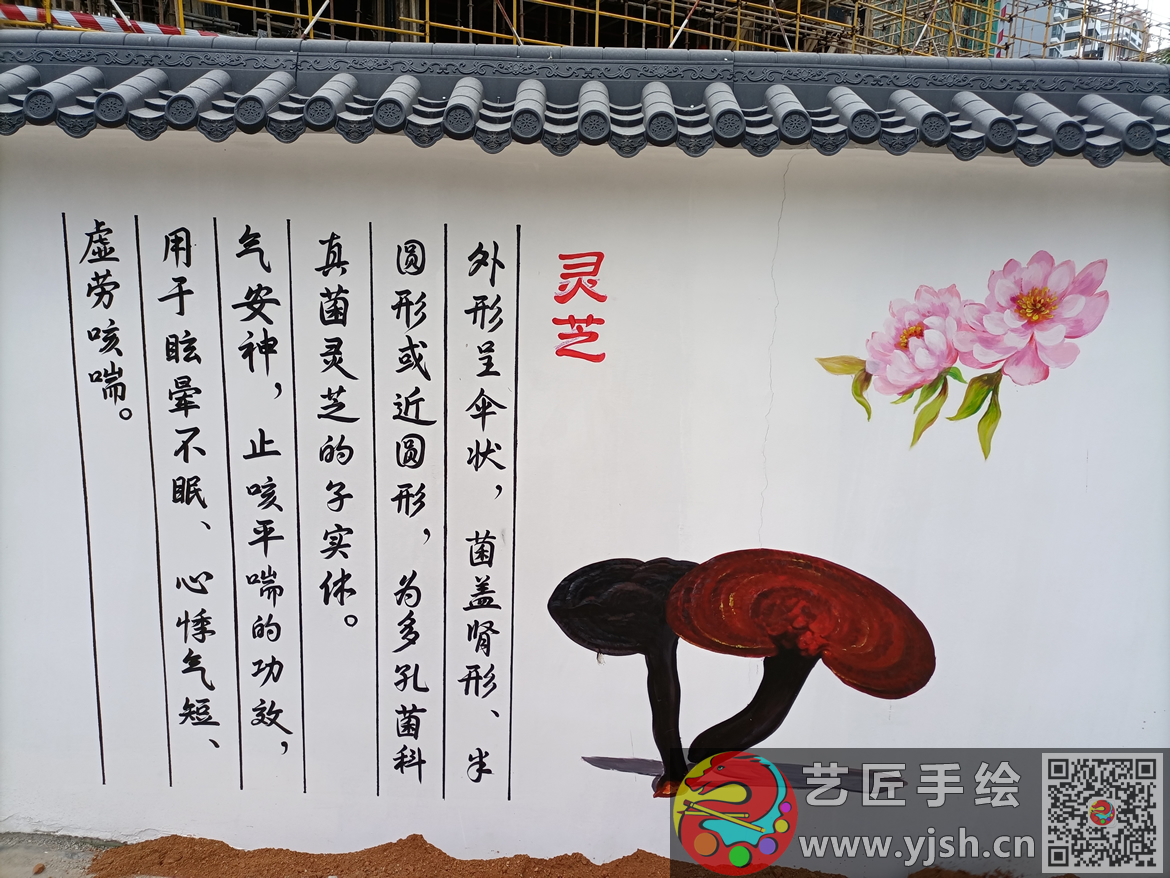 灵芝
外形呈伞状，菌盖肾形、半
圆形或近圆形，为多孔菌科
真菌灵芝的子实体。
气安神，止咳平喘的功效，
用于眩晕不眠、心悸气短、
虚劳咳喘。
艺匠手绘
www.yjsh.cn